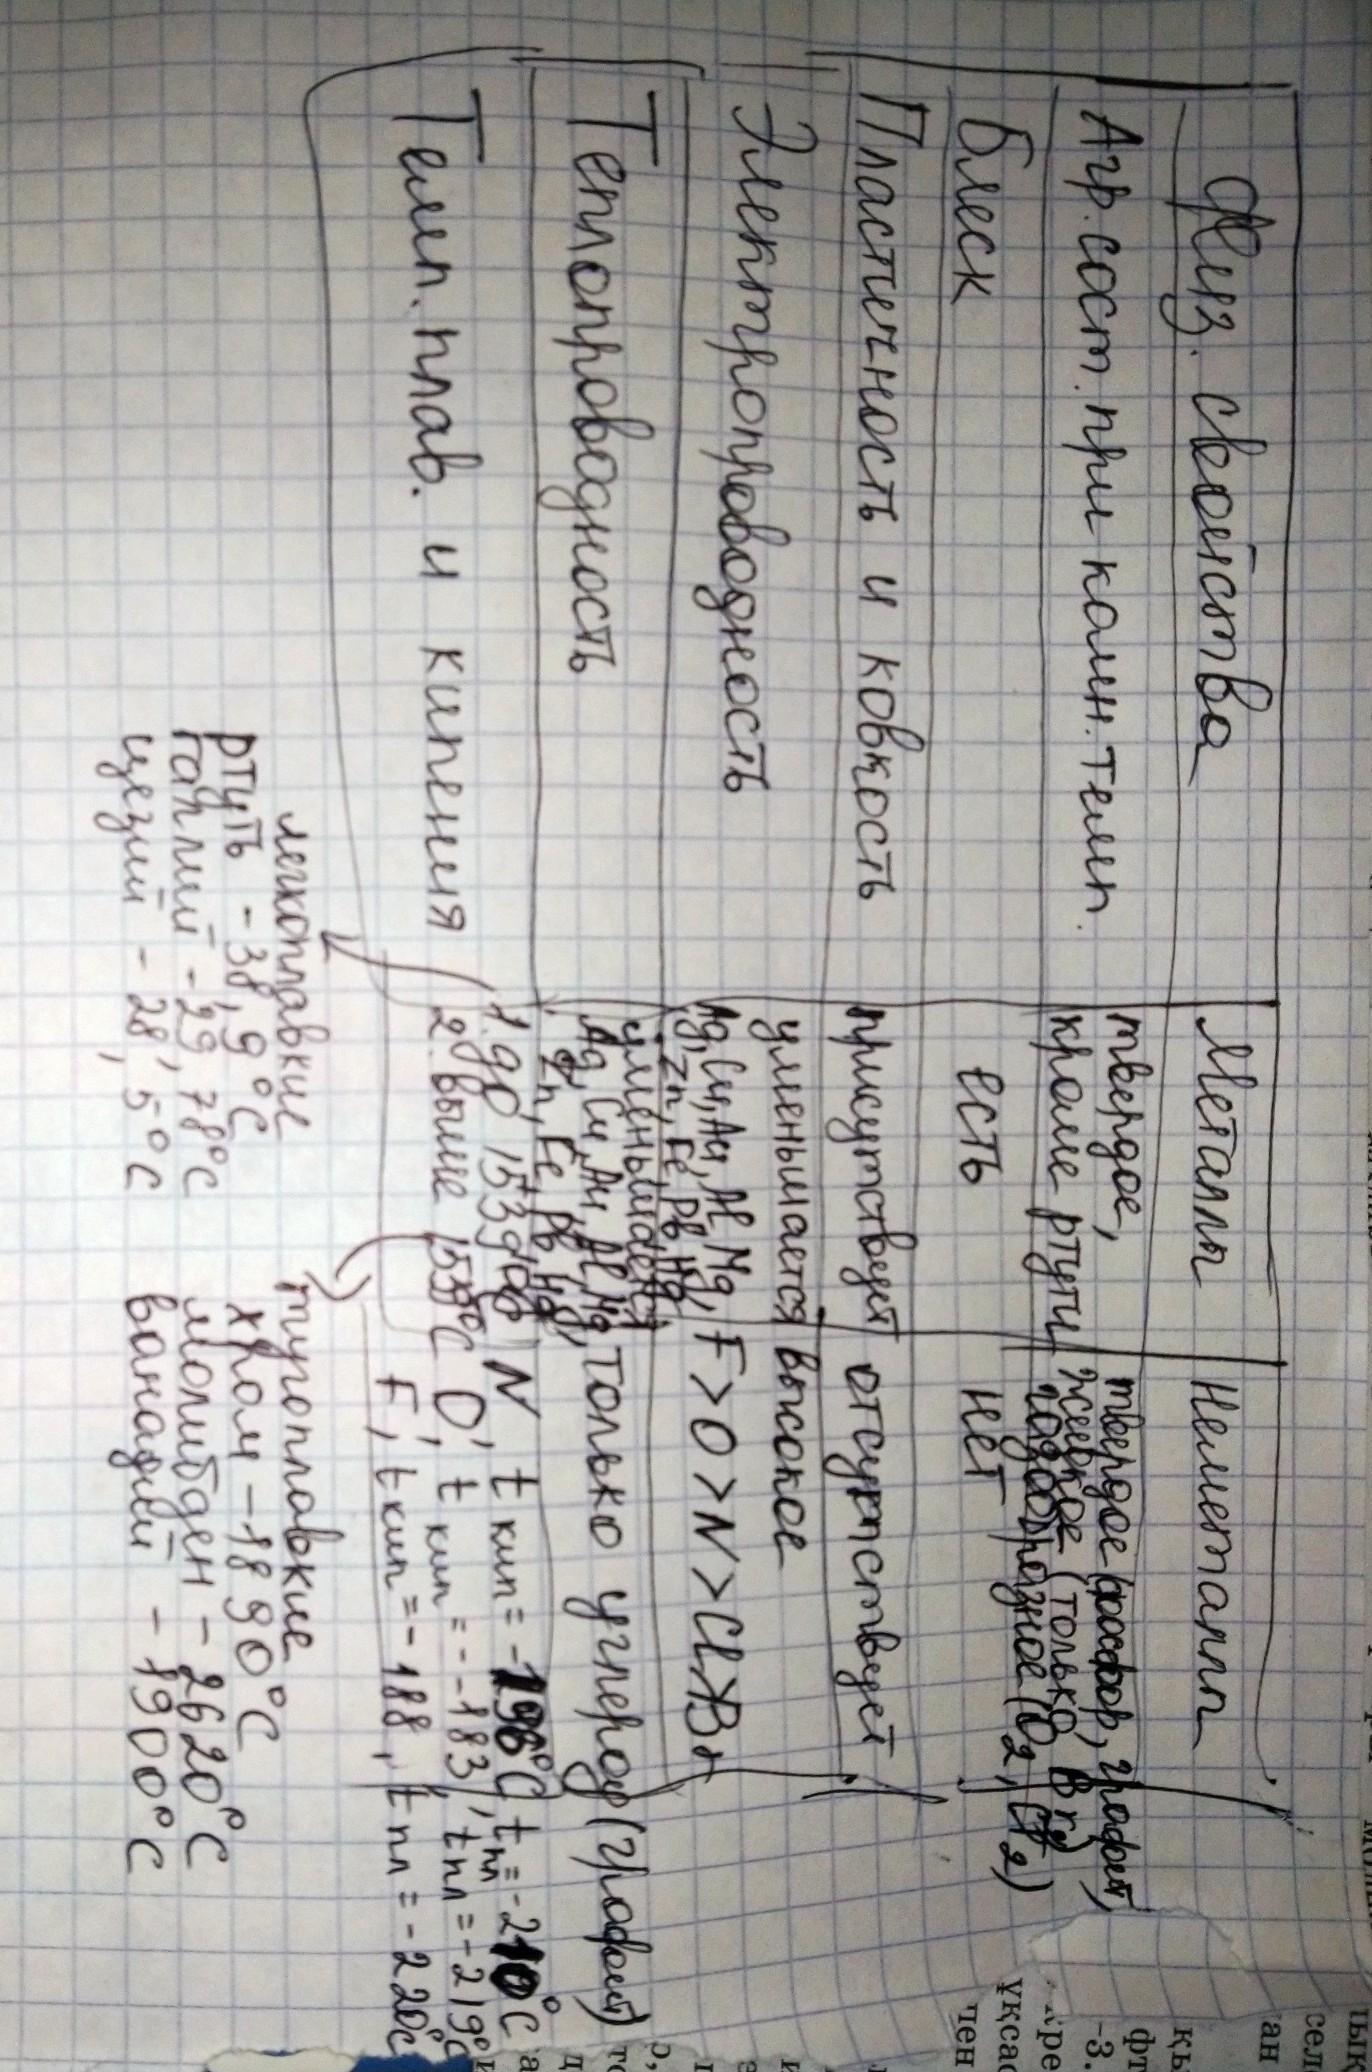 Физ. свойства
Металлы
Неметаллы
Агр. сост. при комн. темп.
твердое,
кроме ртути
твердое (фосфор, графит)
жидкое (только Br₂)
газообразное (O₂, Cl₂)
Блеск
есть
нет
Пластичность и ковкость
присутствует
отсутствует
Электропроводность
уменьшается
Ag, Cu, Au, Al, Mg,
Zn, Fe, Pb, Hg
высокое
F > O > N > Cl > Br
Теплопроводность
уменьшается
Ag, Cu, Au, Al, Mg,
Zn, Fe, Pb, Hg,
только углерод (графит)
Темп. плав. и кипения
1. до 1539°C
2. выше 1539°C
N t кип = -196°C, t пл = -210°C
O, t кип = -183, t пл = -219°C
F, t кип = -188, t пл = -220°C
легкоплавкие
ртуть - 38,9°C
галлий - 29,78°C
цезий - 28,5°C
тугоплавкие
хром - 1890°C
молибден - 2620°C
ванадий - 1900°C